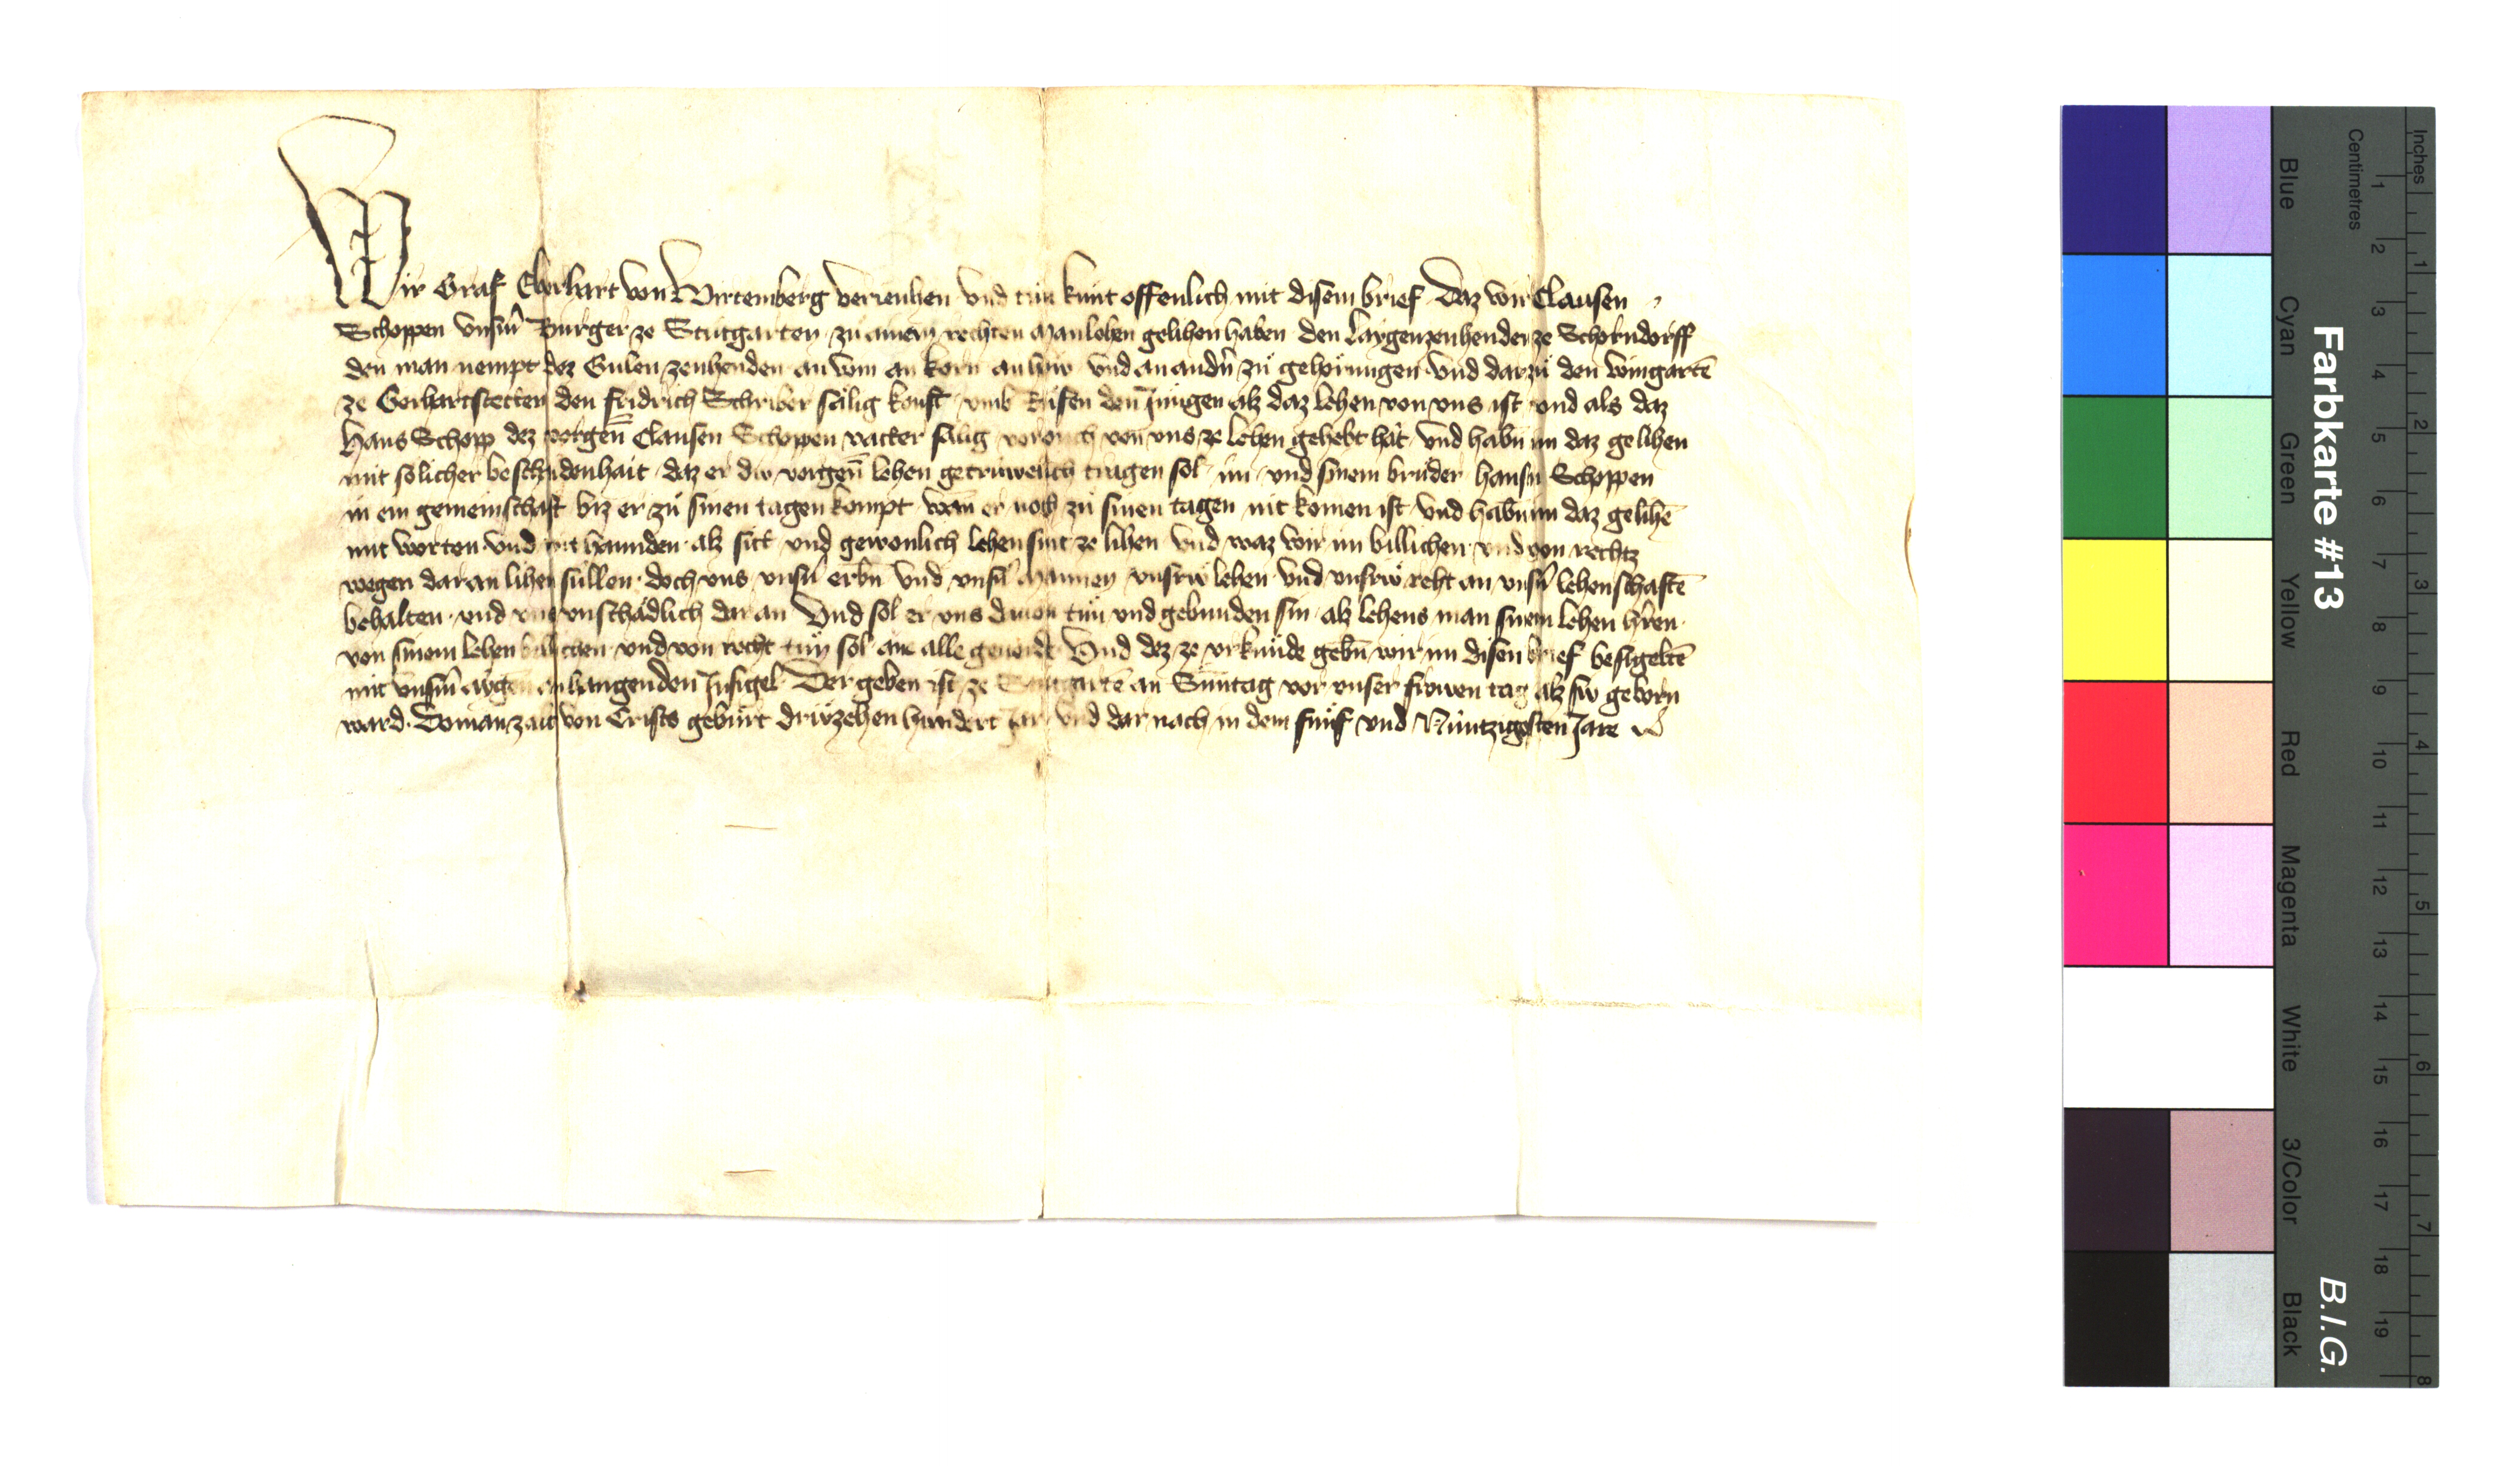 Wir Graf Eberhart von Wirtemberg veriehen vnd tuͤn kunt offenlich mit disem brief Daz wir Clausen
Schoppen vnserm Burger ze Stutgarten zu ainem rechten Manlehen gelihen haben den Laygenzenhenden ze Schorndorff
den man nempt dez Sulen zenhenden an win an korn an hiw vnd an andern zuͦ gehoͤrungen vnd darzuͦ den wingartē
ze Gerhartstetten den fridrich Schriber saͤlig kouft vmb Ruͤfen den Jungen alz daz lehen von vns ist vnd als daz
Hans Schopp dez vorgen̄ Clausen Schoppen vatter saͤlig vor ouch von vns ze lehen gehebt hat vnd habn im daz gelihen
mit solicher beschaidenhait daz er div vorgen̄ lehen getruwelich tragen sol im vnd sinem bruͦder hansen Schoppen
in ein gemeinschaft biz er zuͦ sinen tagen kompt wan er noch zuͦ sinen tagen nit komen ist vnd habn im daz gelihē
mit worten vnd mit hannden alz sitt vnd gewonlich lehen sint ze lihen vnd waz wir im billichen vnd von rechtz
wegen dar an lihen suͤllen doch vns vnsern erbn vnd vnsern Mannen vnsriw lehen vnd vnsriw reht an vnsern lehenschaftē
behalten vnd vns vnschaͤdlich dar an Vnd sol er vns davon tuͤn vnd gebunden sin alz lehens man sinem lehen herren
von sinem lehen billichen vnd von recht tuͤn sol ane alle geuerde Vnd dez ze vrkuͤnde gebn̄ wir im disen brief besigeltē
mit vnserm aygen anhangenden Insigel Der geben ist ze Stutgartē an Sunntag vor vnser frowen tag alz siw geborn
ward. Do man zalt von Cristz geburt driwzehen hundert Jar vnd dar nach in dem fuͤnf vnd Nuͤntzigosten Jare
Farbkarte #13
B.I.G.
Inches 1 2 3 4 5 6 7 8
Centimetres 1 2 3 4 5 6 7 8 9 10 11 12 13 14 15 16 17 18 19
Blue
Cyan
Green
Yellow
Red
Magenta
White
3/Color
Black